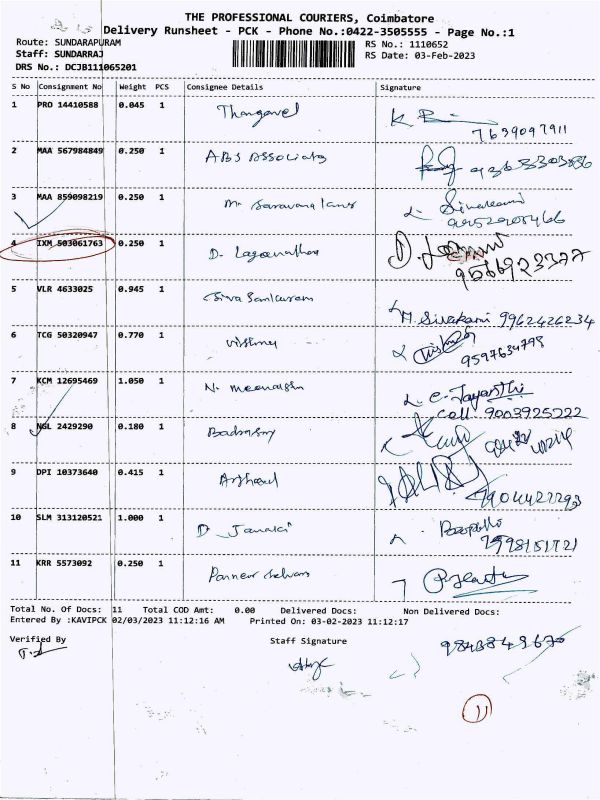 THE PROFESSIONAL COURIERS, Coimbatore
Delivery Runsheet - PCK - Phone No.:0422-3505555 - Page No.:1
Route: SUNDARAPURAM
Staff: SUNDARRAJ
DRS No.: DCJB111065201
RS No.: 1110652
RS Date: 03-Feb-2023
S No Consignment No Weight PCS Consignee Details Signature
1 PRO 14410588 0.045 1 Thangavel 7639097911
2 MAA 567984849 0.250 1 ABS Associates
3 MAA 859098219 0.250 1 Sivakami
4 IXM 503061763 0.250 1 D. Loganathan 9566923377
5 VLR 4633025 0.945 1 Siva Sankaram M. Sivakami 9962426234
6 TCG 50320947 0.770 1 Vishnu 9597634798
7 KCM 12695469 1.050 1 N. Meenakshi C. Jayanthi
Cell: 9003925222
8 NGL 2429290 0.180 1
9 DPI 10373640 0.415 1
10 SLM 313120521 1.000 1 D. Janaki
11 KRR 5573092 0.250 1 Panneer Selvam
Total No. Of Docs: 11 Total COD Amt: 0.00 Delivered Docs: Non Delivered Docs:
Entered By :KAVIPCK 02/03/2023 11:12:16 AM Printed On: 03-02-2023 11:12:17
Verified By Staff Signature
9843849670
11